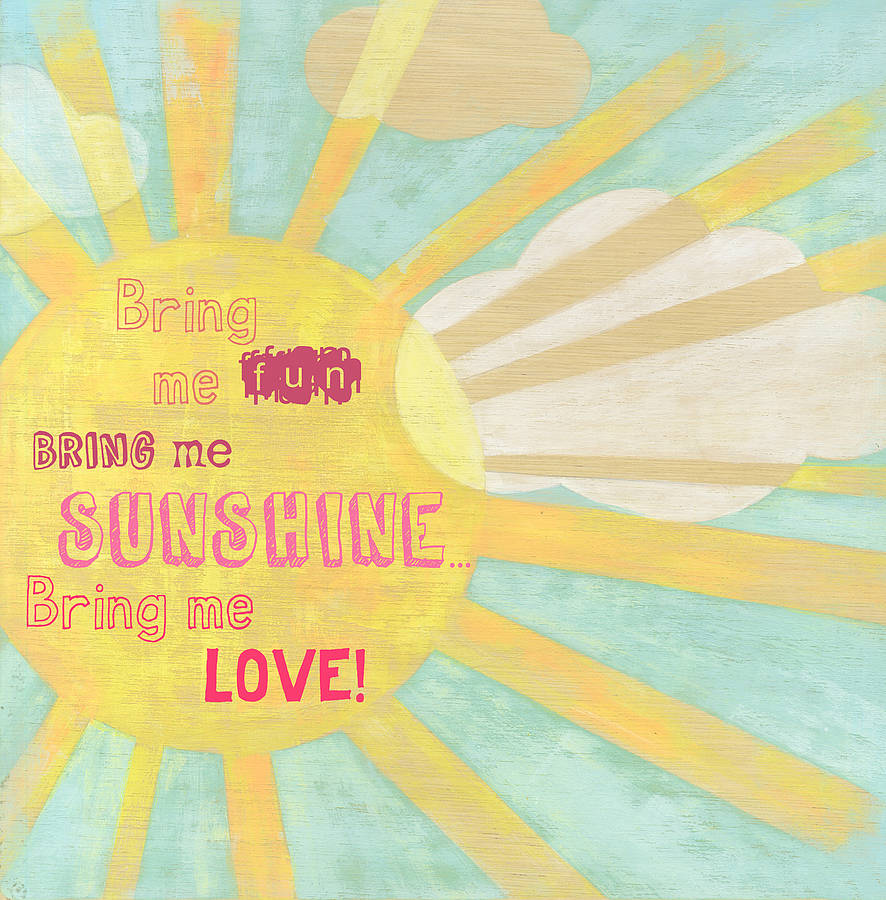 Bring
me fun
BRING me
SUNSHINE...
Bring me
LOVE!